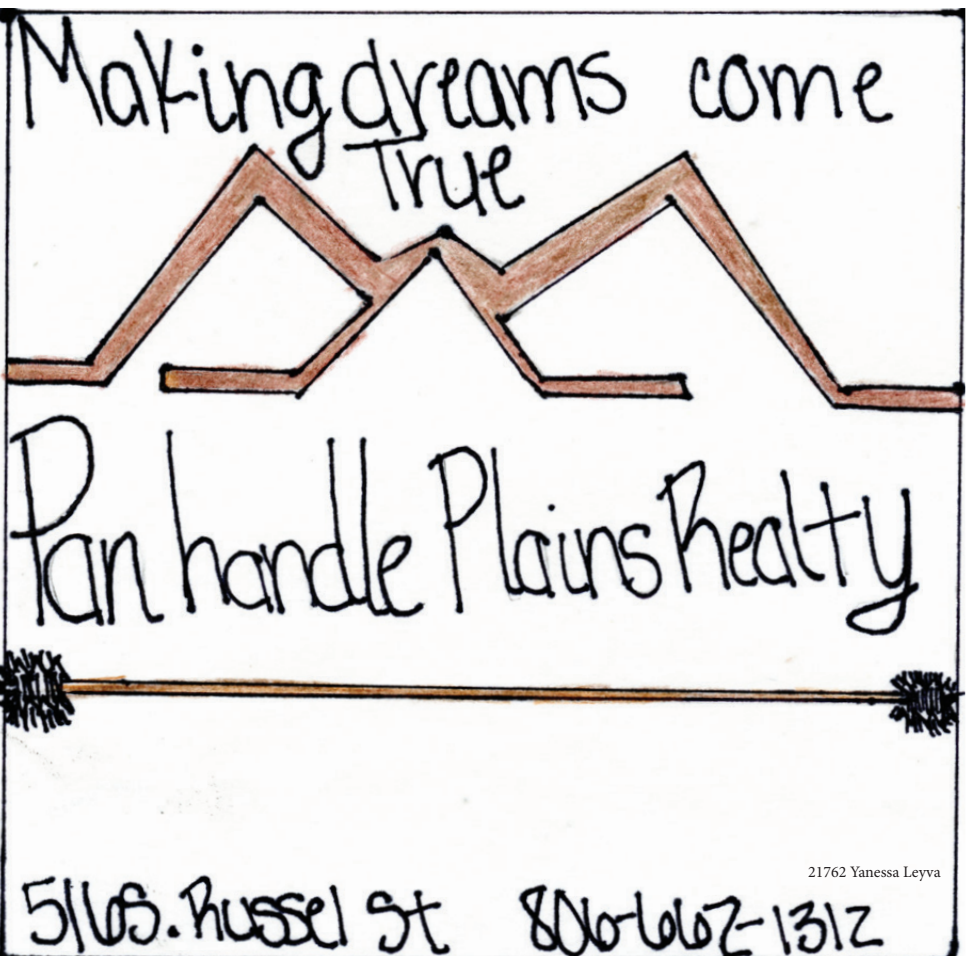 Making dreams come
True
Panhandle Plains Realty
21762 Yanessa Leyva
516 S. Russel St 806-662-1312